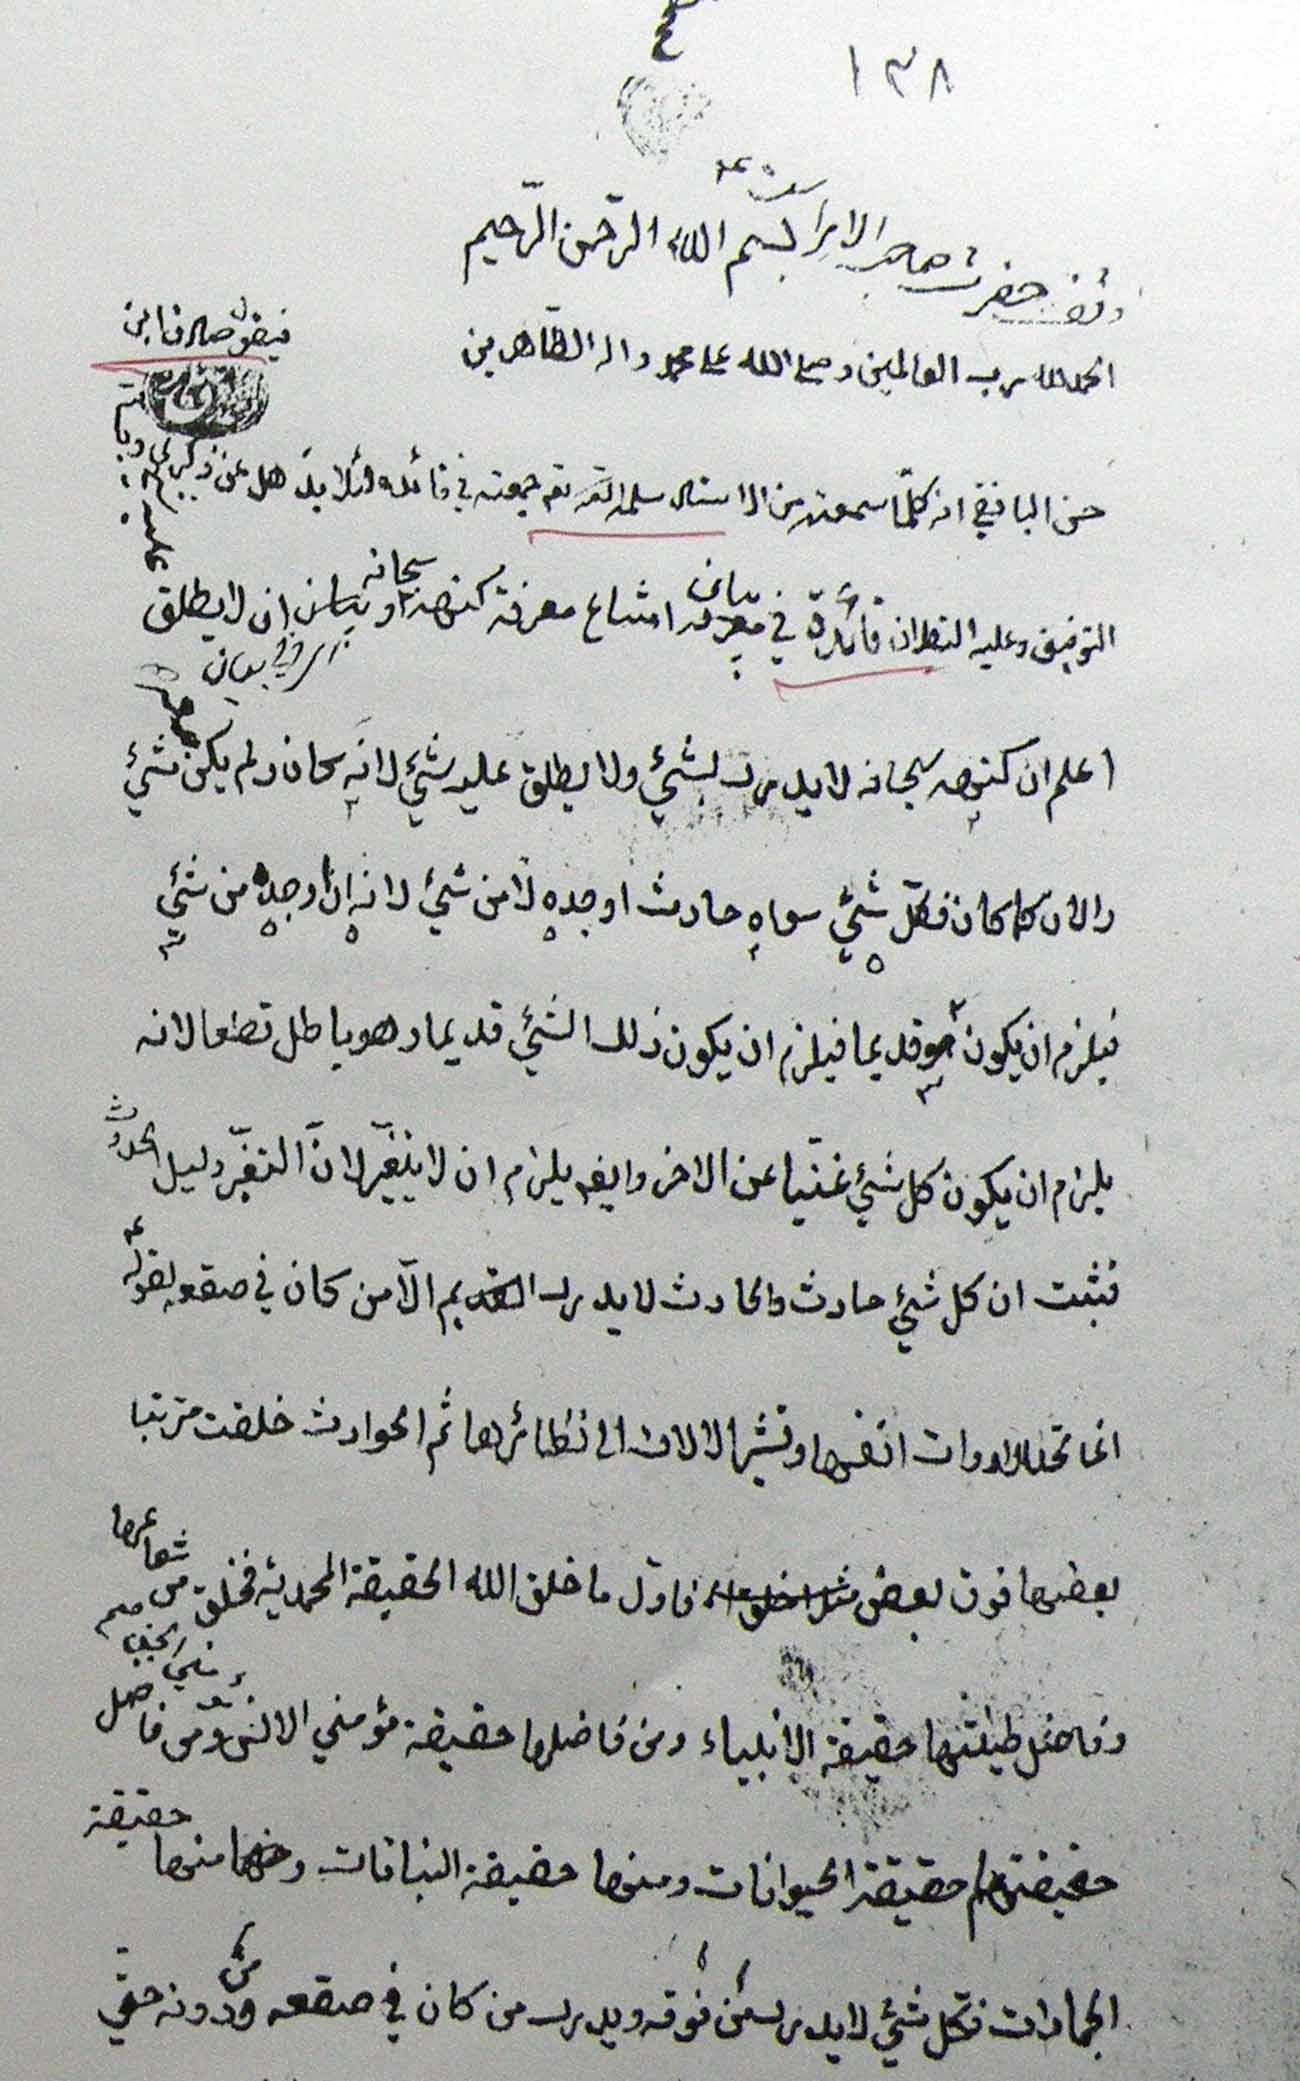 ١٣٨
بسم الله الرّحمن الرّحيم
وقف حضرت صاحب الامر
الحمد لله رب العالمين وصلى الله على محمد واله الطّاهرين
فيقول صادق ابن
حسن البافقي انه كلّما سمعته من الاستاد سلمه الله تعم جمعته في فائدة
التوفيق وعليه التكلان فائدة في بيان امتناع معرفة كنهه سبحانه وبيان ان لا يطلق
اعلم ان كنهه سبحانه لا يدرك بشئ ولا يطلق عليه شئ لانّه كان ولم يكن شئ
والان كما كان فكلّ شئ سواه حادث اوجده لا من شئ لانه ان اوجده من شئ
فيلزم ان يكون هو قديما فيلزم ان يكون ذلك الشئ قديما وهو باطل قطعا لانه
يلزم ان يكون كل شئ غنيّا عن الاخر وايضا يلزم ان لا يتغيّر لانّ التغيّر دليل الحدوث
فثبت ان كل شئ حادث والحادث لا يدرك القديم الّا من كان في صقعه لقوله ع
انما تحد الادوات انفسها وتشير الالات الى نظائرها ثم الحوادث خلقت مترتبا
بعضها فوق بعض فاوّل ما خلق الله الحقيقة المحمدية فخلق من شعاعها
وفاضل طينتها حقيقة الانبياء ومن فاضلها حقيقة مؤمني الانس ومن فاضل
حقيقتهم حقيقة الحيوانات ومنها حقيقة النباتات ومنها حقيقة
الجمادات فكل شئ لا يدرك من فوقه ويدرك من كان في صقعه ومن دونه حتّى